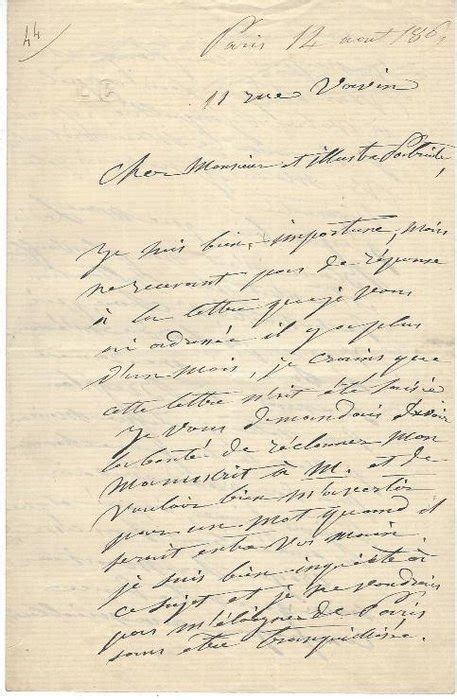 44
Paris 12 aout 186
11 rue Vavin
Cher Monsieur et illustre
Je suis bien importune, mais
ne recevant pas de réponse
à la lettre que je vous
ai adressée il y a plus
d'un mois, je crains que
cette lettre n'ait été
Je vous demandais d'avoir
la bonté de réclamer mon
manuscrit à M. et de
vouloir bien m'avertir
par un mot quand il
serait entre vos mains.
je suis bien inquiète à
ce sujet et je ne voudrais
pas m'éloigner de Paris
sans être tranquillisée.